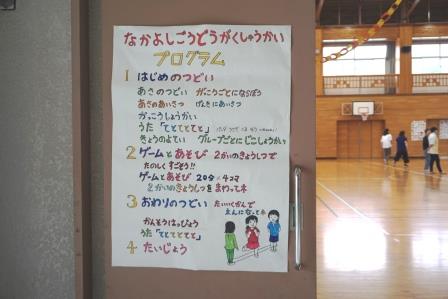 なかよしごうどうがくしゅうかい
プログラム
1 はじめのつどい
あさのつどい がっこうごとにならぼう
あさのあいさつ げんきにあいさつ
がっこうしょうかい
うた「てとてとてと」
きょうのよてい グループごとにじこしょうかい
2 ゲームとあそび 2かいのきょうしつで
たのしくすごそう!!
ゲームとあそび 20分×4コマ
2かいのきょうしつをまわって
3 おわりのつどい たいいくかんで
えんになって
かんそうはっぴょう
うた「てとてとてと」
4 たいじょう